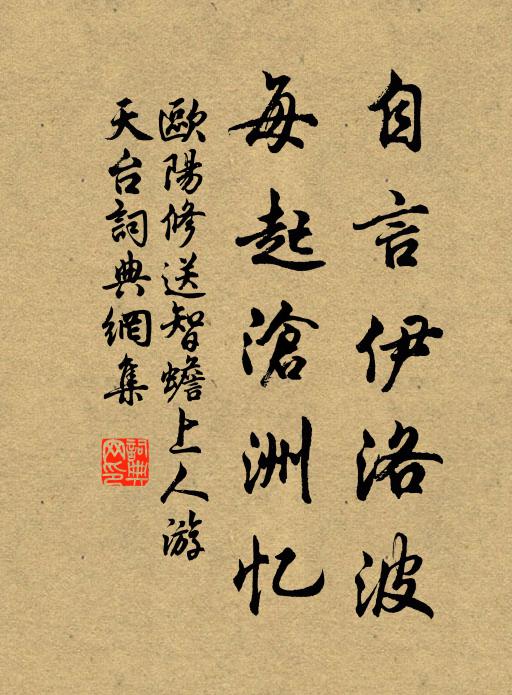 自言伊洛波
每起滄洲忆
歐陽修送智蟾上人游
天台詞典網集
詞典网印